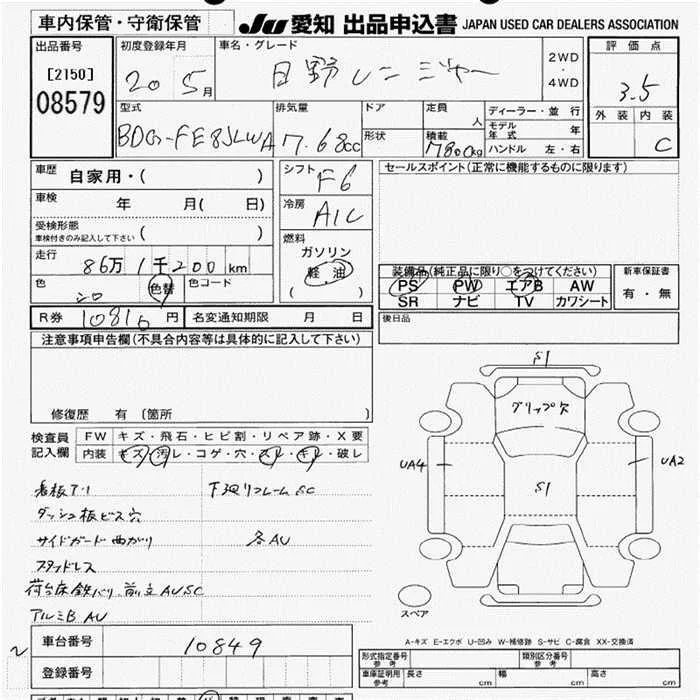 車内保管・守衛保管 JU 愛知 出品申込書 JAPAN USED CAR DEALERS ASSOCIATION
出品番号 初度登録年月 車名・グレード 評価点
[2150] 20 5月 日野レンジャー 2WD・4WD 3.5
08579 外装 内装
型式 排気量 ドア 定員 人 ディーラー・並行
BDG-FE8JLWA 7.68cc 形状 積載 7800kg モデル年式 年 C
ハンドル 左・右
車歴 自家用・( ) シフト F6 セールスポイント(正常に機能するものに限ります)
車検 年 月( 日) 冷房 A/C
受検形態 ( )
車検付きのみ記入して下さい
燃料 ガソリン
走行 86万1千200km 軽油 装備品(純正品に限り○をつけてください) 新車保証書
色 シロ 色替 色コード ( ) PS PW エアB AW 有・無
SR ナビ TV カワシート
R券 10810円 名変通知期限 月 日 後日品
注意事項申告欄(不具合内容等は具体的に記入して下さい)
S1
グリップ穴
修復歴 有 [箇所 ]
検査員記入欄 FW キズ・飛石・ヒビ割・リペア跡・X要
内装 キズ・汚レ・コゲ・穴・スレ・キレ・破レ
UA4 UA2
S1
看板アリ 下廻リフレームSC
ダッシュ板ビス穴
サイドガード曲がり 各AU
スタッドレス
荷台床鉄バリ 前立AUSC
アルミB AU
スペア
車台番号 10849
A-キズ E-エクボ U-凹み W-補修跡 S-サビ C-腐食 XX-交換済
登録番号
形式指定番号 参考 類別区分番号 参考
車庫証明用 参考 長さ cm 幅 cm 高さ cm